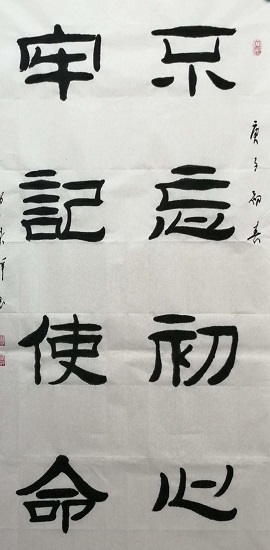 不忘初心
牢記使命
庚子初春